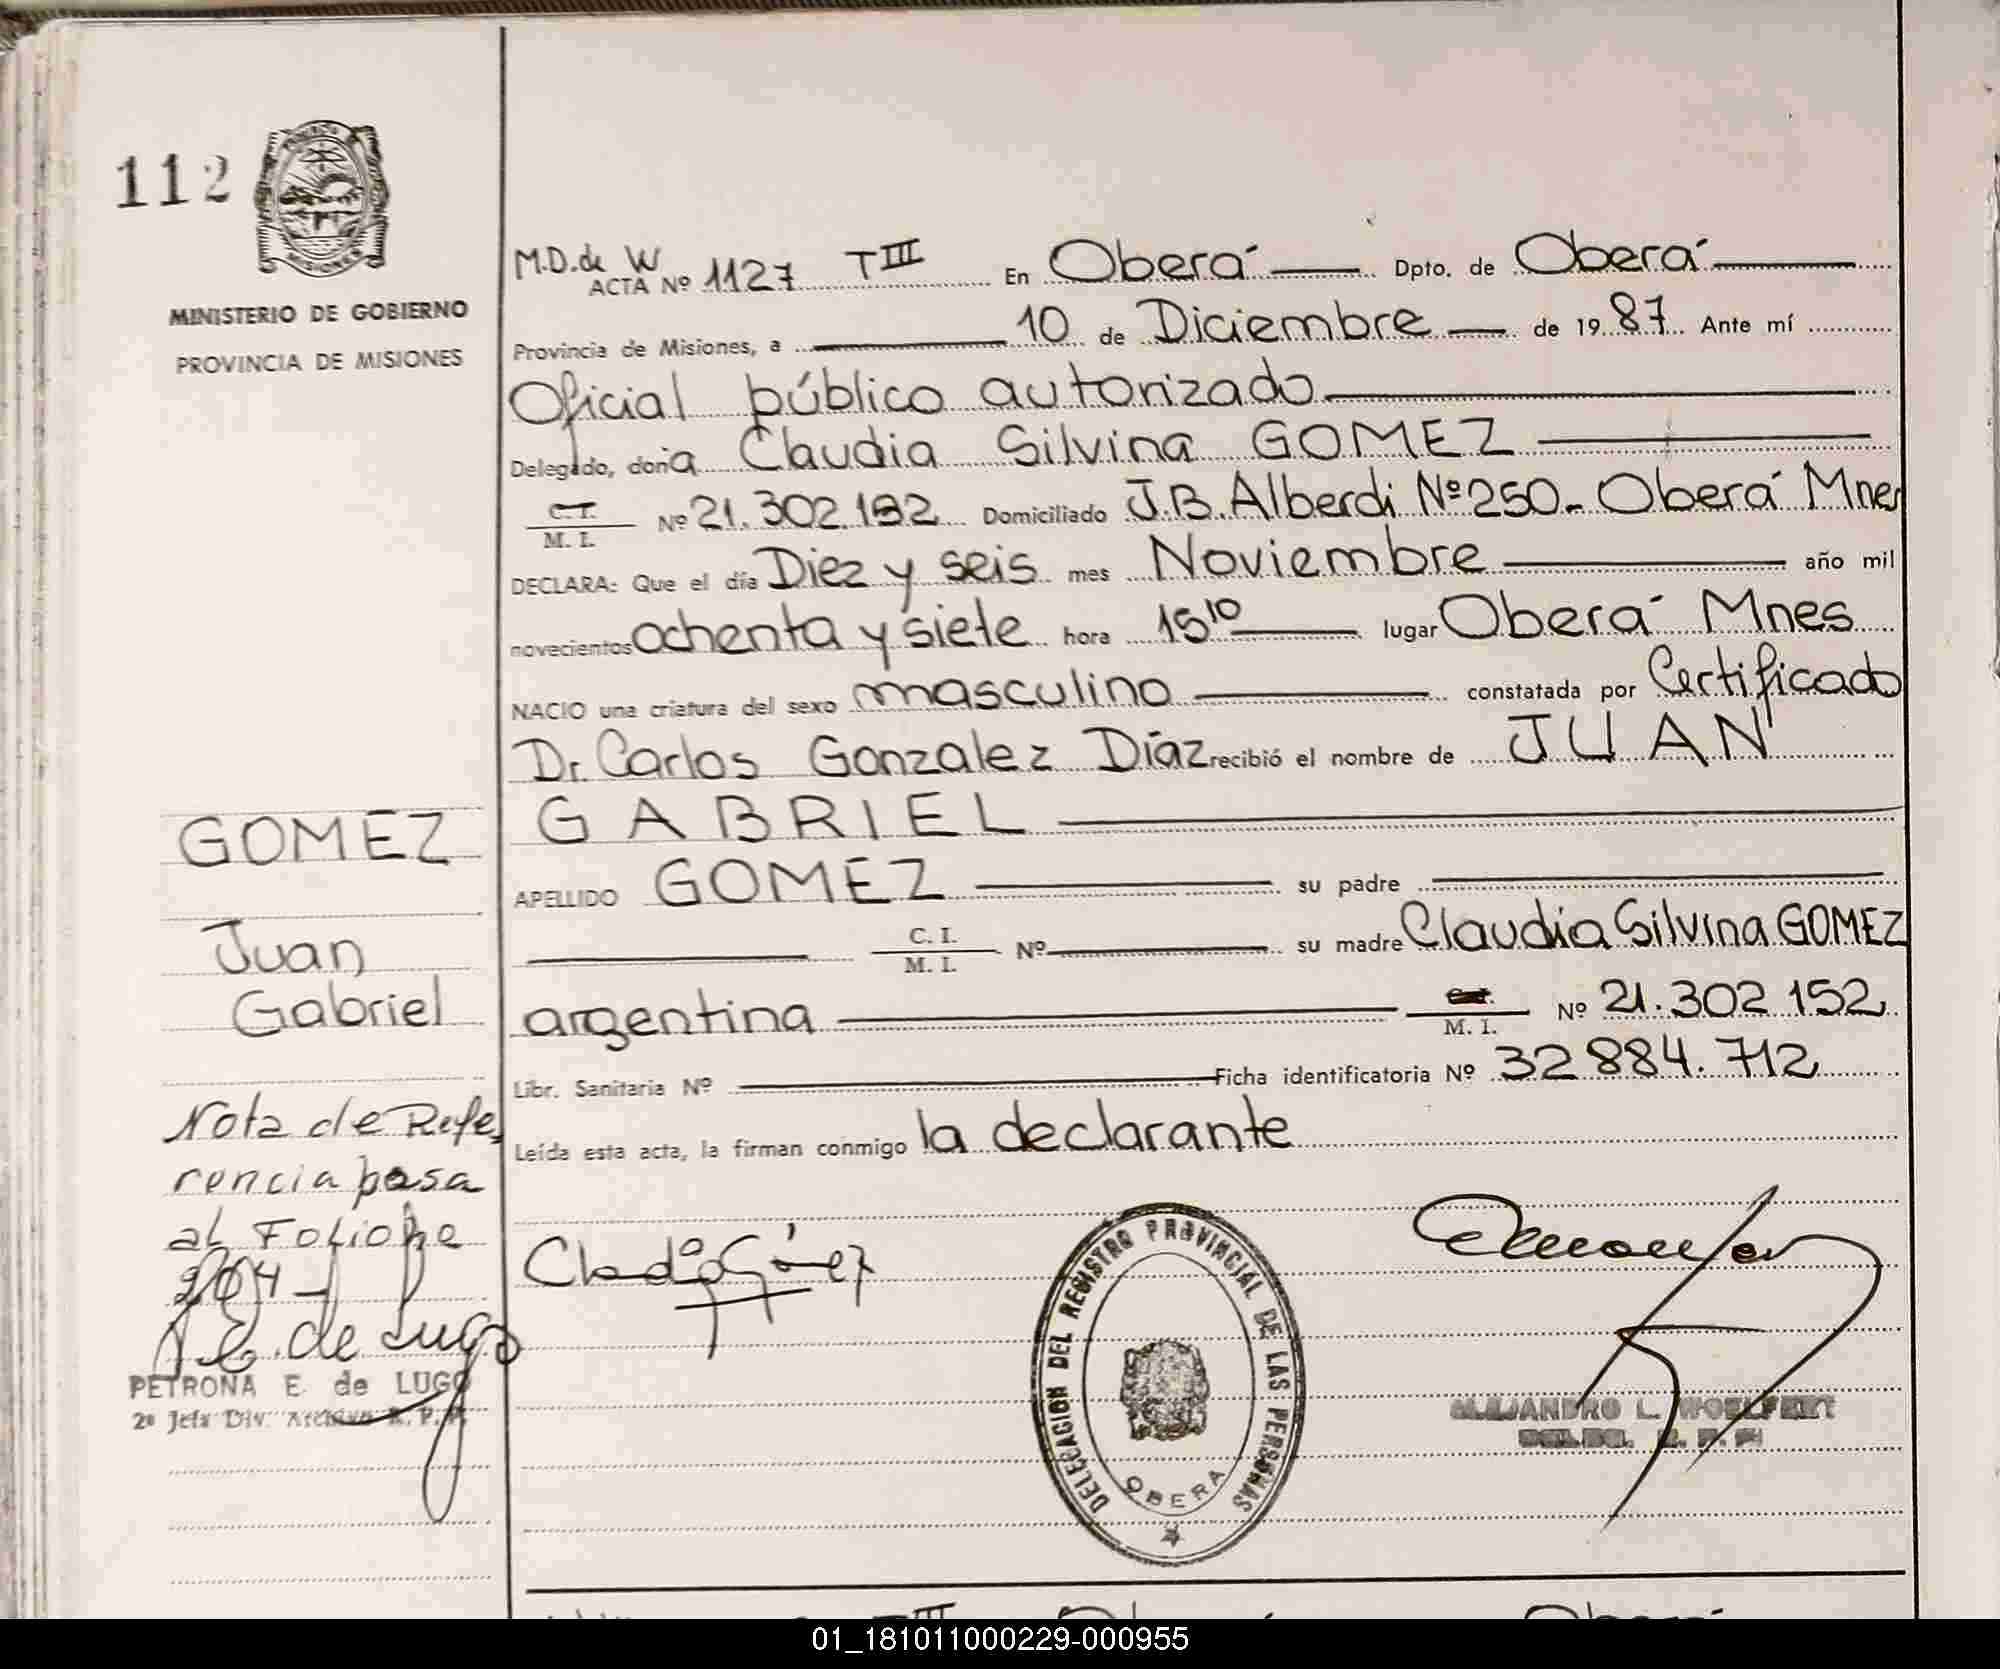 112
MISIONES
MINISTERIO DE GOBIERNO
PROVINCIA DE MISIONES
M.D. de W
ACTA Nº 1127 T III En Oberá Dpto. de Oberá
Provincia de Misiones, a 10 de Diciembre de 19 87 Ante mí
Oficial público autorizado
Delegado, doña Claudia Silvina GOMEZ
C. I.
M. I. Nº 21.302.152 Domiciliado J.B. Alberdi Nº 250- Oberá Mnes
DECLARA: Que el día Diez y seis mes Noviembre año mil
novecientos ochenta y siete hora 15 10 lugar Oberá Mnes
NACIO una criatura del sexo masculino constatada por Certificado
Dr. Carlos Gonzalez Díaz recibió el nombre de JUAN
GABRIEL
APELLIDO GOMEZ su padre
C. I.
M. I. Nº su madre Claudia Silvina GOMEZ
argentina M. I. Nº 21.302.152
Libr. Sanitaria Nº Ficha identificatoria Nº 32 884.712
Leída esta acta, la firman conmigo la declarante
GOMEZ
Juan
Gabriel
Nota de Refe
rencia pasa
al Folio Nº
204-
P.E. de Lugo
PETRONA E. de LUGO
2º Jefa Div. Archivo R. P. P.
DELEGACION DEL REGISTRO PROVINCIAL DE LAS PERSONAS
OBERA
ALEJANDRO L. WOELFERT
DELEG. R. P. P.
01_181011000229-000955